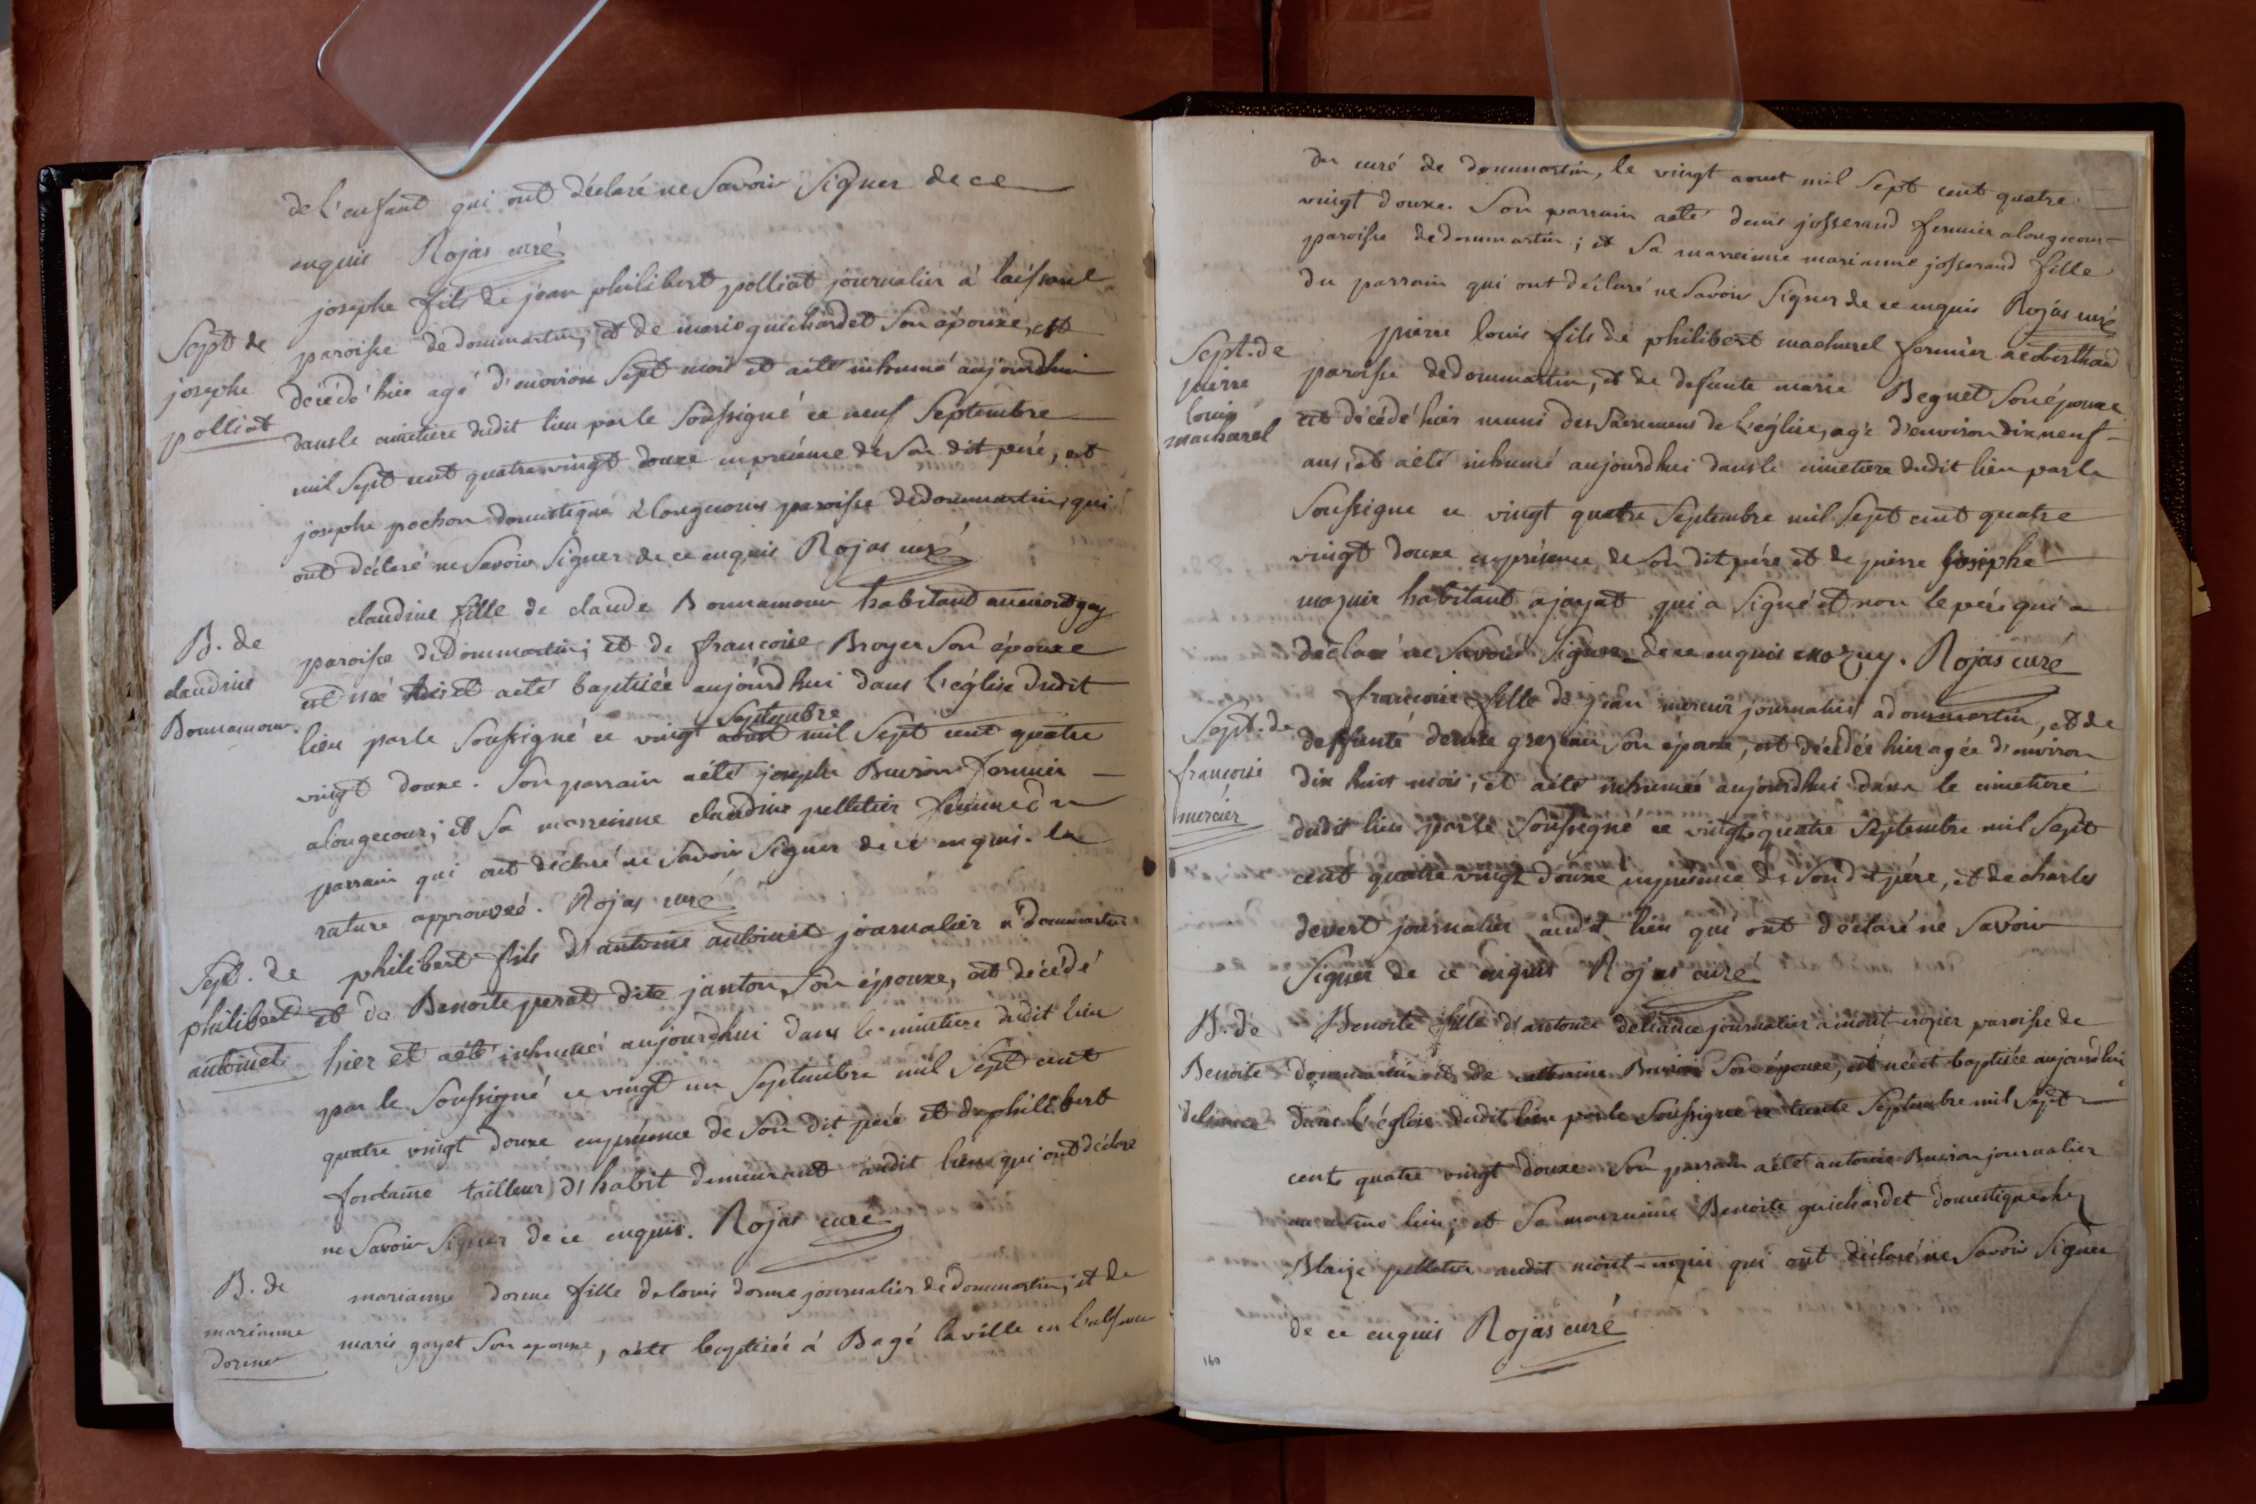 de l'enfant qui ont déclaré ne Savoir Signer de ce
enquis Rojas curé
Sept de
josephe
polliat
josephe fils de jean philibert polliat journalier à
paroisse de dommartin, et de marie guichardet Son épouxe, est
décédé hier agé d'environ Sept mois et aété inhumé aujourdhui
dans le cimetiere dudit lieu par le Soussigné ce neuf Septembre
mil Sept cent quatrevingt douxe enpresence de Son dit peré, et
josephe pochon domestique à longecour paroisse de dommartin, qui
ont déclaré ne Savoir Signer de ce enquis Rojas curé
B. de
claudine
Bonnamour
claudine fille de claude Bonnamour habitant aumontgey
paroisse de Dommartin; et de francoise Broyer Son épouxe
est née hier et aété baptisée aujourd'hui dans l'église dudit
Septembre
lieu par le Soussigné ce vingt aout mil Sept cent quatre
vingt douxe. Son parrain aété joseph Buiron fermier
alongecour; et Sa marreinne claudine pelletier femme du
parrain qui ont déclaré ne Savoir Signer de ce enquis. la
rature approuvée. Rojas curé
Sept. de
philibert
antoinet
philibert fils d'antoine antoinet journalier a dommartin
et de Benoite perat dite janton Son épouxe, est décédé
hier et aété inhumé aujourdhui dans le cimetiere dudit lieu
par le Soussigné ce vingt un Septembre mil Sept cent
quatre vingt douxe enpresence de Son dit peré et de philibert
fontaine tailleur d'habit demeurant audit lieu qui ont déclaré
ne Savoir Signer de ce enquis. Rojas curé
B. de
marianne
dorme
marianne dorme fille de louis dorme journalier de dommartin, et de
marie gayet Son epouxe, aété baptisée à Bagé la ville en l'absence
du curé de dommartin, le vingt aout mil Sept cent quatre
vingt douxe. Son parrain aété denis josserand fermier alongecour
paroisse de dommartin; et Sa marreinne marianne josserand fille
du parrain qui ont déclaré ne Savoir Signer de ce enquis Rojas curé
Sept. de
pierre
louis
macharel
pierre louis fils de philibert macharel fermier
paroisse de dommartin, et de defunte marie Beguet Son épouxe
est décédé hier muni des Sacremens de l'église, agé d'environ dix neuf
ans, et aété inhumé aujourdhui dans le cimetiere dudit lieu par le
Soussigne ce vingt quatre Septembre mil Sept cent quatre
vingt douxe enprésence de Son dit pére et de pierre josephe
mozuir habitant ajayat qui a Signé et non le pére qui a
déclaré ne Savoir Signer de ce enquis mozuy. Rojas curé
Sept. de
francoise
mercier
francoise fille de jean mercier journalier a dommartin, et de
deffunte denixe Son épouxe, est décédée hier agée d'environ
dix huit mois, et aété inhumée aujourdhui dans le cimetiere
dudit lieu par le Soussigné ce vingt quatre Septembre mil Sept
cent quatre vingt douxe enpresence de Son dit pére, et de charles
devert journalier audit lieu qui ont déclaré ne Savoir
Signer de ce enquis Rojas curé
B. de
Benoite
deliance
Benoite fille d'antoine deliance journalier amont-crozier paroisse de
dommartin et de catherine Buiron Son épouxe, est née et baptisée aujourd'hui
dans l'église dudit lieu par le Soussigne ce trente Septembre mil Sept
cent quatre vingt douxe. Son parrain aété antoine Buiron journalier
au même lieu; et Sa marreinne Benoite guichardet domestique chez
Blaize pelletier audit mont-crozier qui ont déclaré ne Savoir Signer
de ce enquis Rojas curé
160